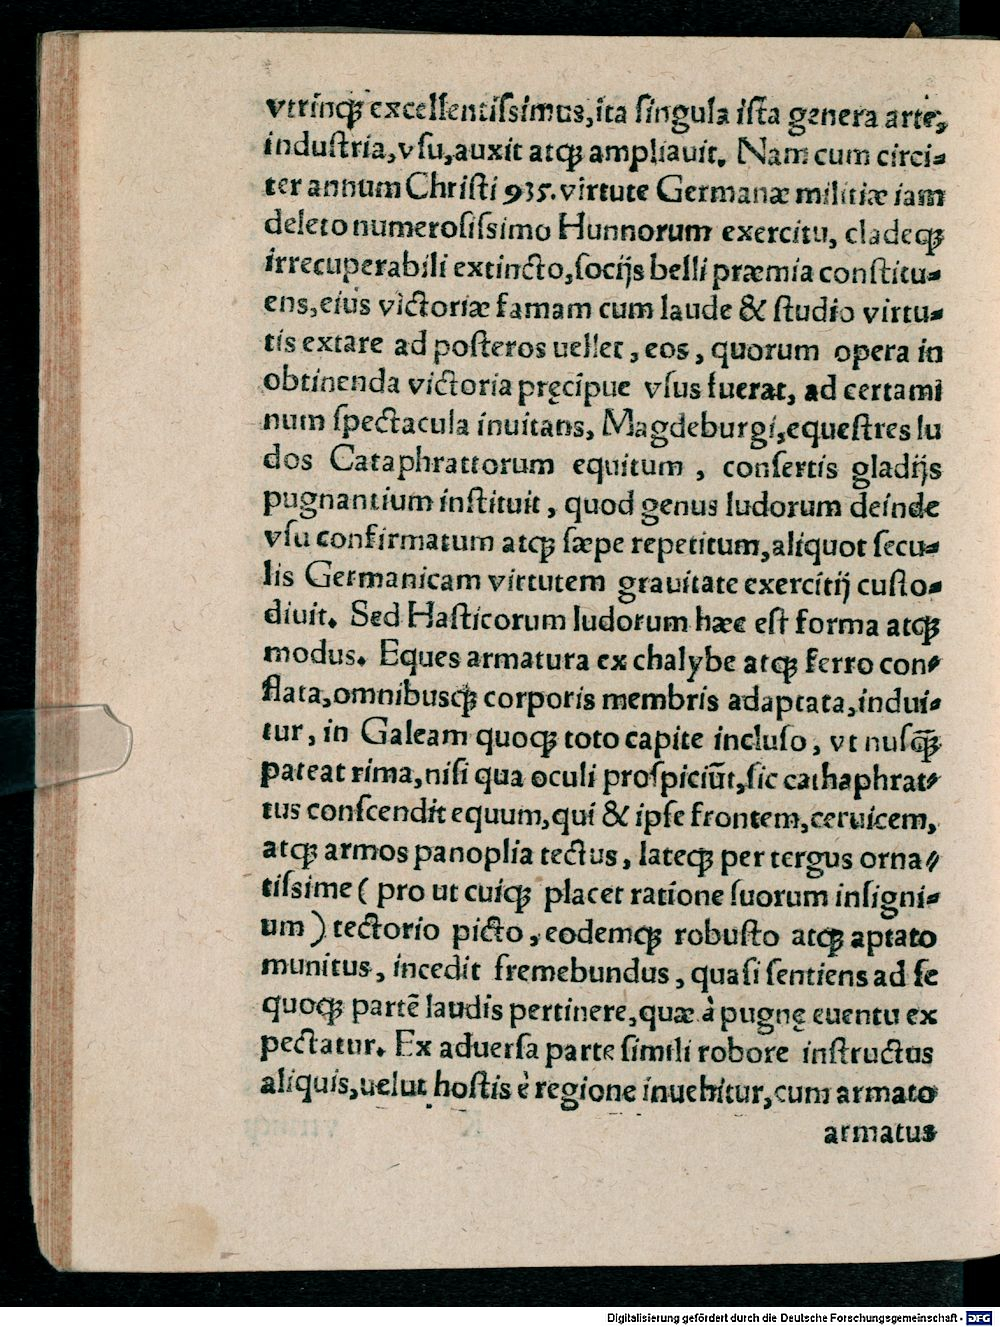 vtrinqꝫ excellentiſsimus, ita ſingula iſta genera arte,
induſtria, vſu, auxit atqꝫ ampliauit. Nam cum circi-
ter annum Chriſti 935. virtute Germanæ militiæ iam
deleto numeroſiſsimo Hunnorum exercitu, cladeqꝫ
irrecuperabili extincto, ſocijs belli præmia conſtitu-
ens, eius victoriæ famam cum laude & ſtudio virtu-
tis extare ad poſteros uellet, eos, quorum opera in
obtinenda victoria pręcipue vſus fuerat, ad certami
num ſpectacula inuitans, Magdeburgi, equeſtres lu
dos Cataphrattorum equitum, conſertis gladijs
pugnantium inſtituit, quod genus ludorum deinde
vſu confirmatum atqꝫ ſæpe repetitum, aliquot ſecu-
lis Germanicam virtutem grauitate exercitij cuſto-
diuit. Sed Haſticorum ludorum hæc eſt forma atqꝫ
modus. Eques armatura ex chalybe atqꝫ ferro con-
flata, omnibusqꝫ corporis membris adaptata, indui-
tur, in Galeam quoqꝫ toto capite incluſo, vt nuſq̃ꝫ
pateat rima, niſi qua oculi proſpiciũt, ſic cathaphrat-
tus conſcendit equum, qui & ipſe frontem, ceruicem,
atqꝫ armos panoplia tectus, lateqꝫ per tergus orna-
tiſsime ( pro ut cuiqꝫ placet ratione ſuorum inſigni-
um ) tectorio picto, eodemqꝫ robuſto atqꝫ aptato
munitus, incedit fremebundus, quaſi ſentiens ad ſe
quoqꝫ partẽ laudis pertinere, quæ à pugnę euentu ex
pectatur. Ex aduerſa parte ſimili robore inſtructus
aliquis, uelut hoſtis è regione inuehitur, cum armato
armatus
Digitalisierung gefördert durch die Deutsche Forschungsgemeinschaft - DFG